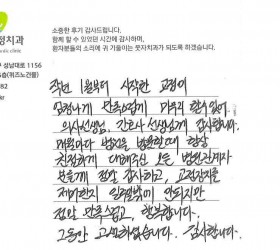 정치과
소중한 후기 감사드립니다.
함께 할 수 있었던 시간에 감사하며
환자분들의 소리에 귀 기울이는 웃자치과가 되도록 하겠습니다.
구 성남대로 1156
6층(위즈노건물)
82
작년 1월부터 시작한 교정이
임청나게 만족스럽게 마무리 되어
의사선생님, 간호사 선생님께 감사합니다.
매월마다 병원을 방문할때 항상
친절하게 대해주신 모든 병원관계자
분들께 정말 감사하고, 교정장치를
제거한지 일주일밖에 안되지만
정말 만족스럽고, 행복합니다.
그동안 고생하셨습니다. 감사합니다.